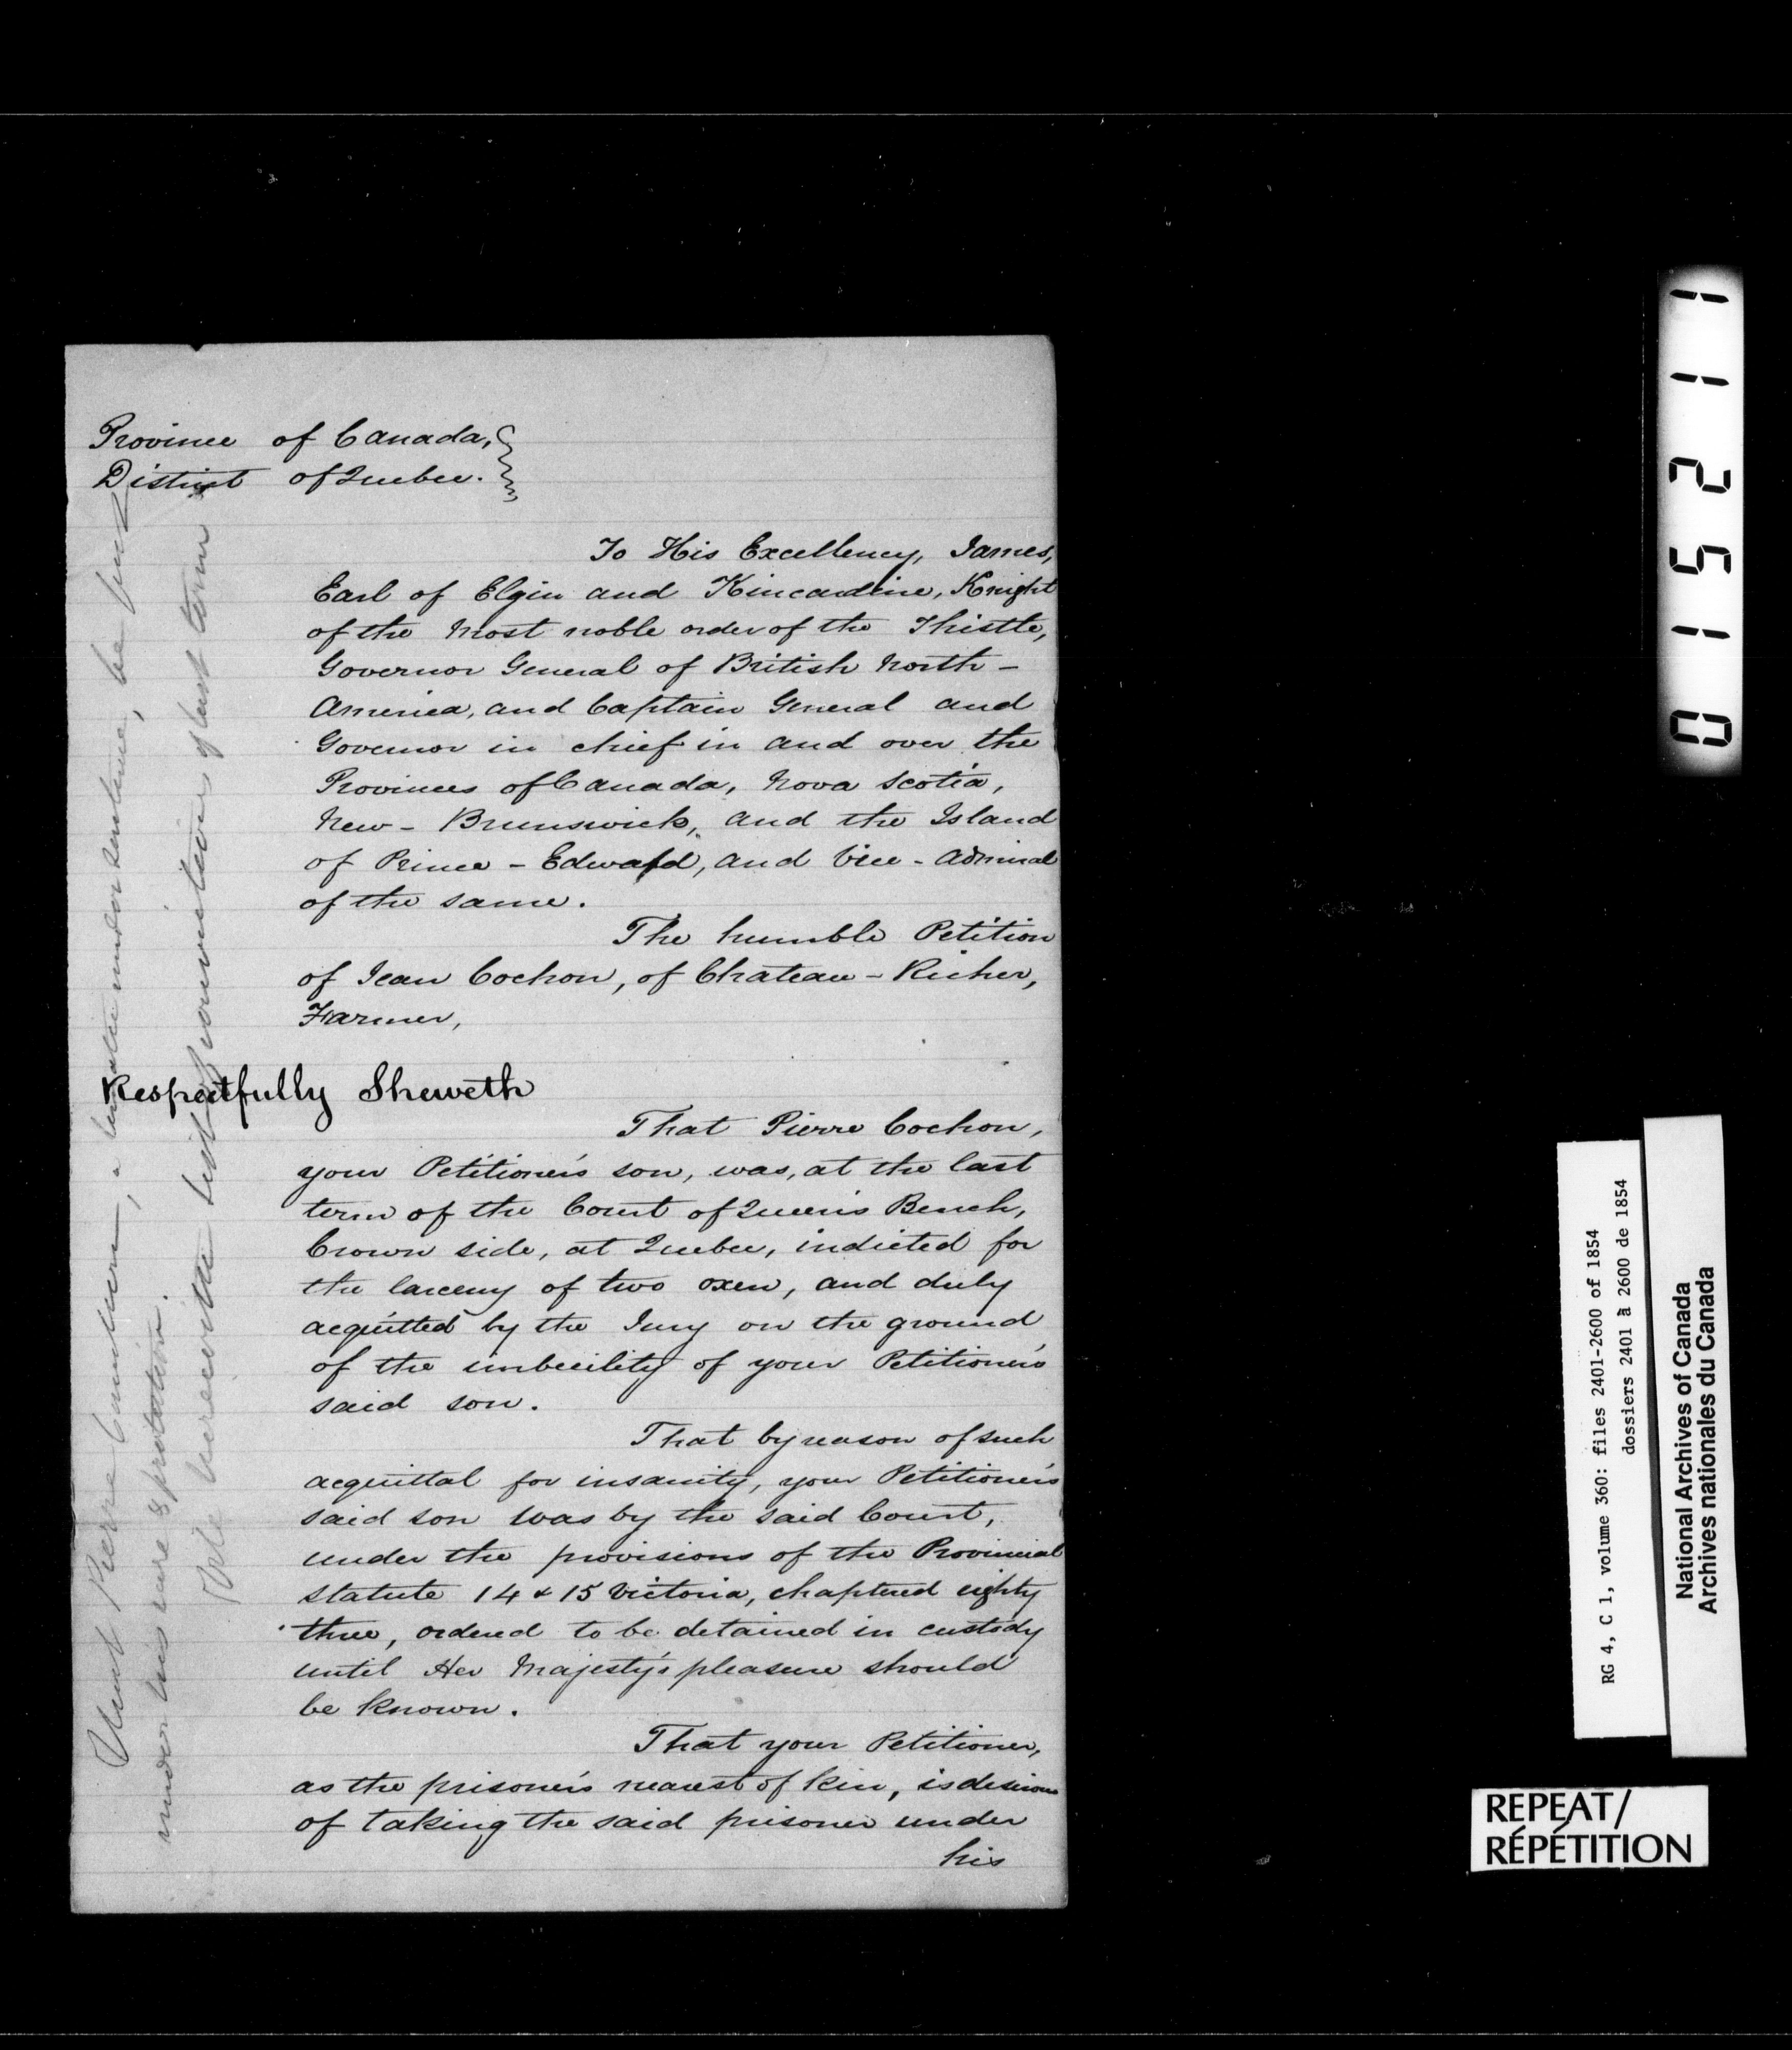 Province of Canada,
District of Quebec.
To His Excellency, James,
Earl of Elgin and Kincardine, Knight
of the Most noble order of the Thistle,
Governor General of British North-
America, and Captain General and
Governor in chief in and over the
Provinces of Canada, Nova Scotia,
New-Brunswick, and the Island
of Prince-Edward, and Vice-Admiral
of the same.
The humble Petition
of Jean Cochon, of Chateau-Richer,
Farmer,
Respectfully Sheweth
That Pierre Cochon,
your Petitioner's son, was, at the last
term of the Court of Queen's Bench,
Crown side, at Quebec, indicted for
the larceny of two oxen, and duly
acquitted by the Jury on the ground
of the imbecility of your Petitioner's
said son.
That by reason of such
acquittal for insanity, your Petitioner's
said son was by the said Court,
under the provisions of the Provincial
statute 14 & 15 Victoria, chaptered eighty
three, ordered to be detained in custody
until Her Majesty's pleasure should
be known.
That your Petitioner,
as the prisoner's nearest of kin, is desirous
of taking the said prisoner under
his
Pierre a lunatic under sentence, be
under his care & protection.
file herewith list of convictions of last term
01521 1
RG 4, C 1, volume 360: files 2401-2600 of 1854
dossiers 2401 à 2600 de 1854
National Archives of Canada
Archives nationales du Canada
REPEAT/
RÉPÉTITION